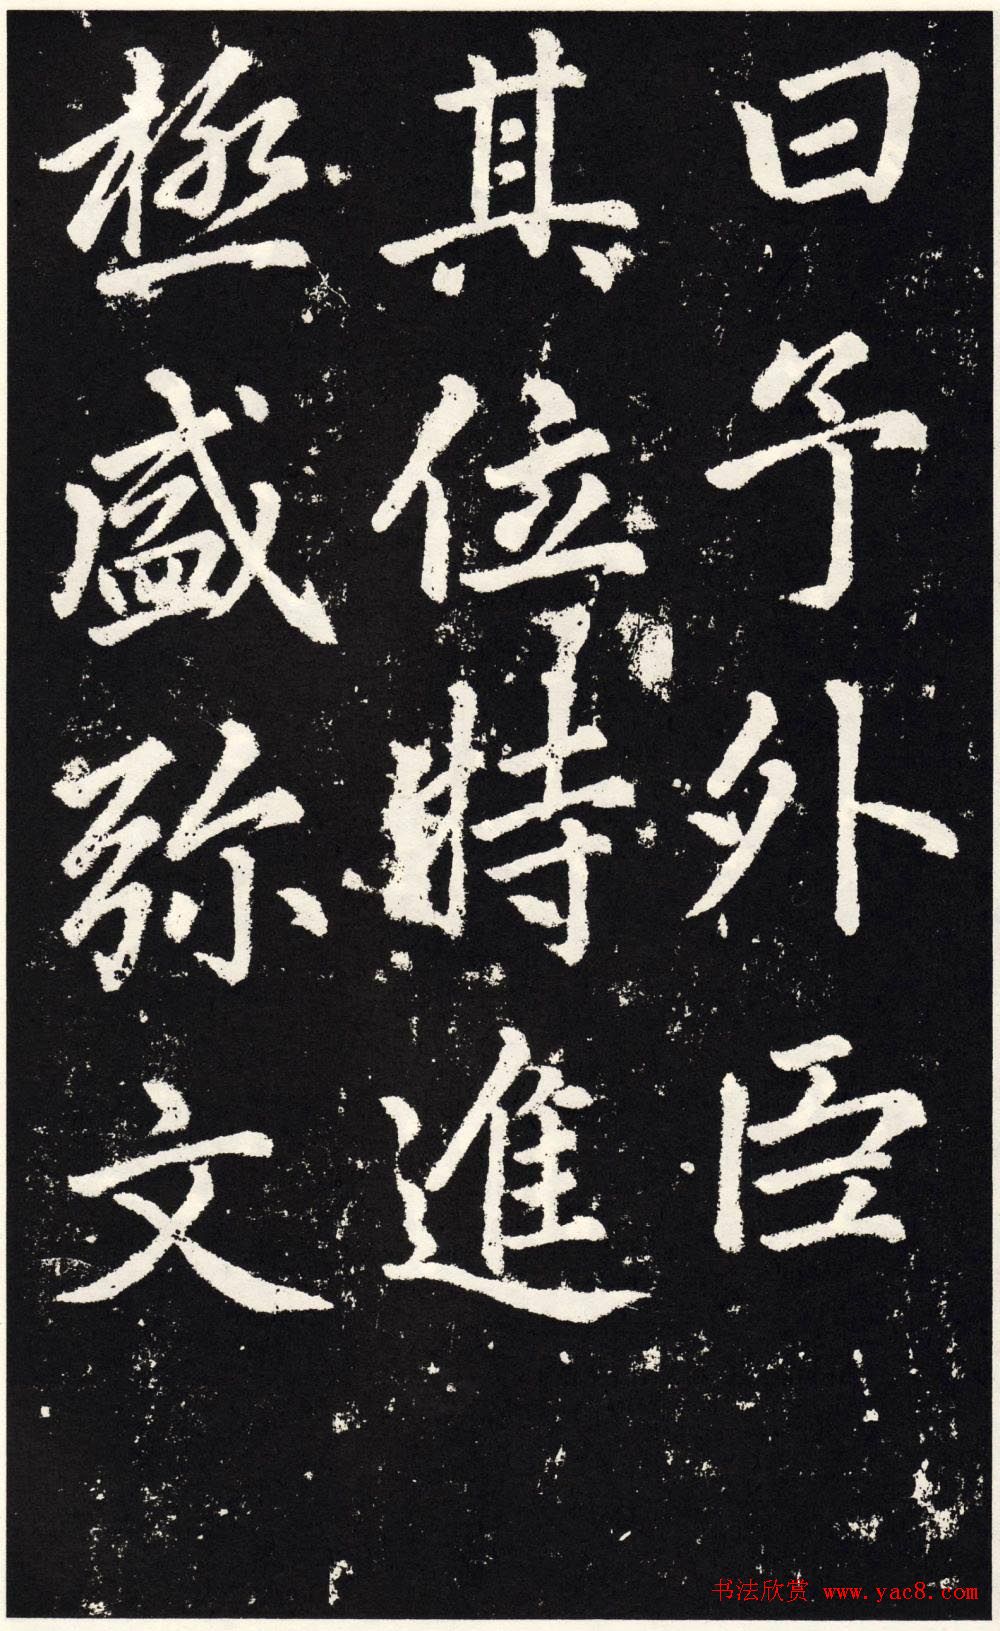 曰予外臣
其位特進
極盛弥文
书法欣赏 www.yac8.com